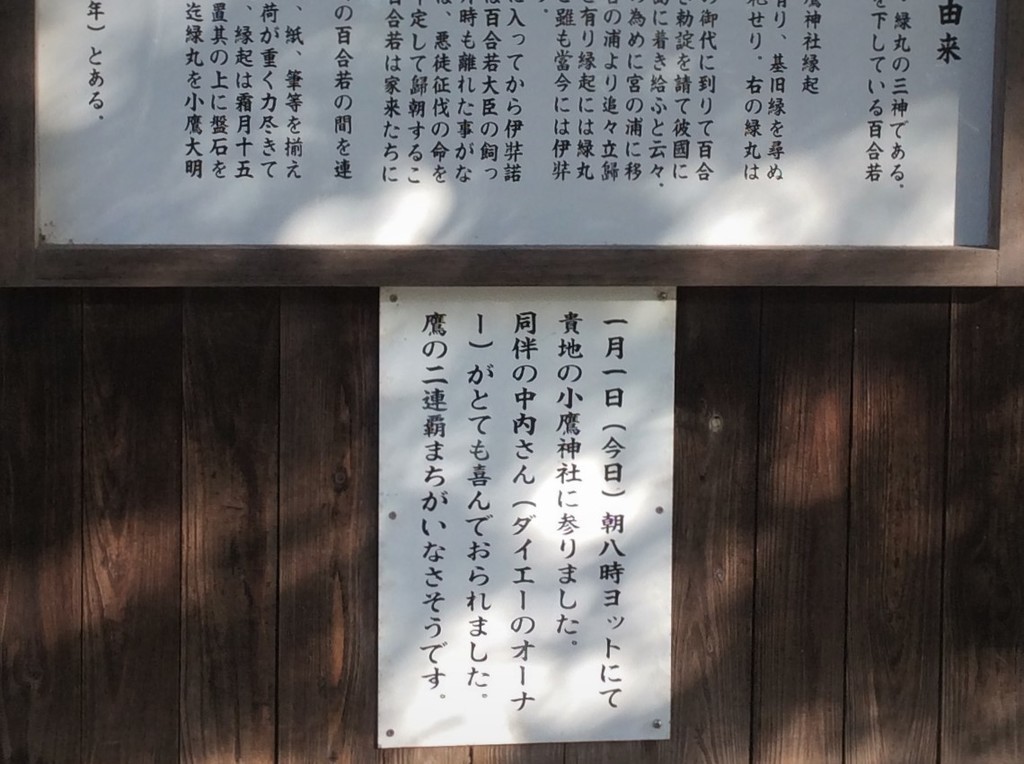 由来
緑丸の三神である。
を下している百合若
鷹神社縁起
有り、基旧縁を尋ぬ
札せり。右の緑丸は
の御代に到りて百合
き勅詮を請て彼國に
島に着き給ふと云々。
の為めに宮の浦に移
宮の浦より追々立歸
を有り縁起には緑丸
と雖も當今には伊弉
に入ってから伊弉諾
は百合若大臣の飼っ
時も離れた事がな
は、悪徒征伐の命を
平定して歸朝するこ
百合若は家来たちに
の百合若の間を連
、紙、筆等を揃え
荷が重く力尽きて
、縁起は霜月十五
置其の上に盤石を
迄緑丸を小鷹大明
年)とある。
一月一日(今日)朝八時ヨットにて
貴地の小鷹神社に参りました。
同伴の中内さん(ダイエーのオーナ
ー)がとても喜んでおられました。
鷹の二連覇まちがいなさそうです。